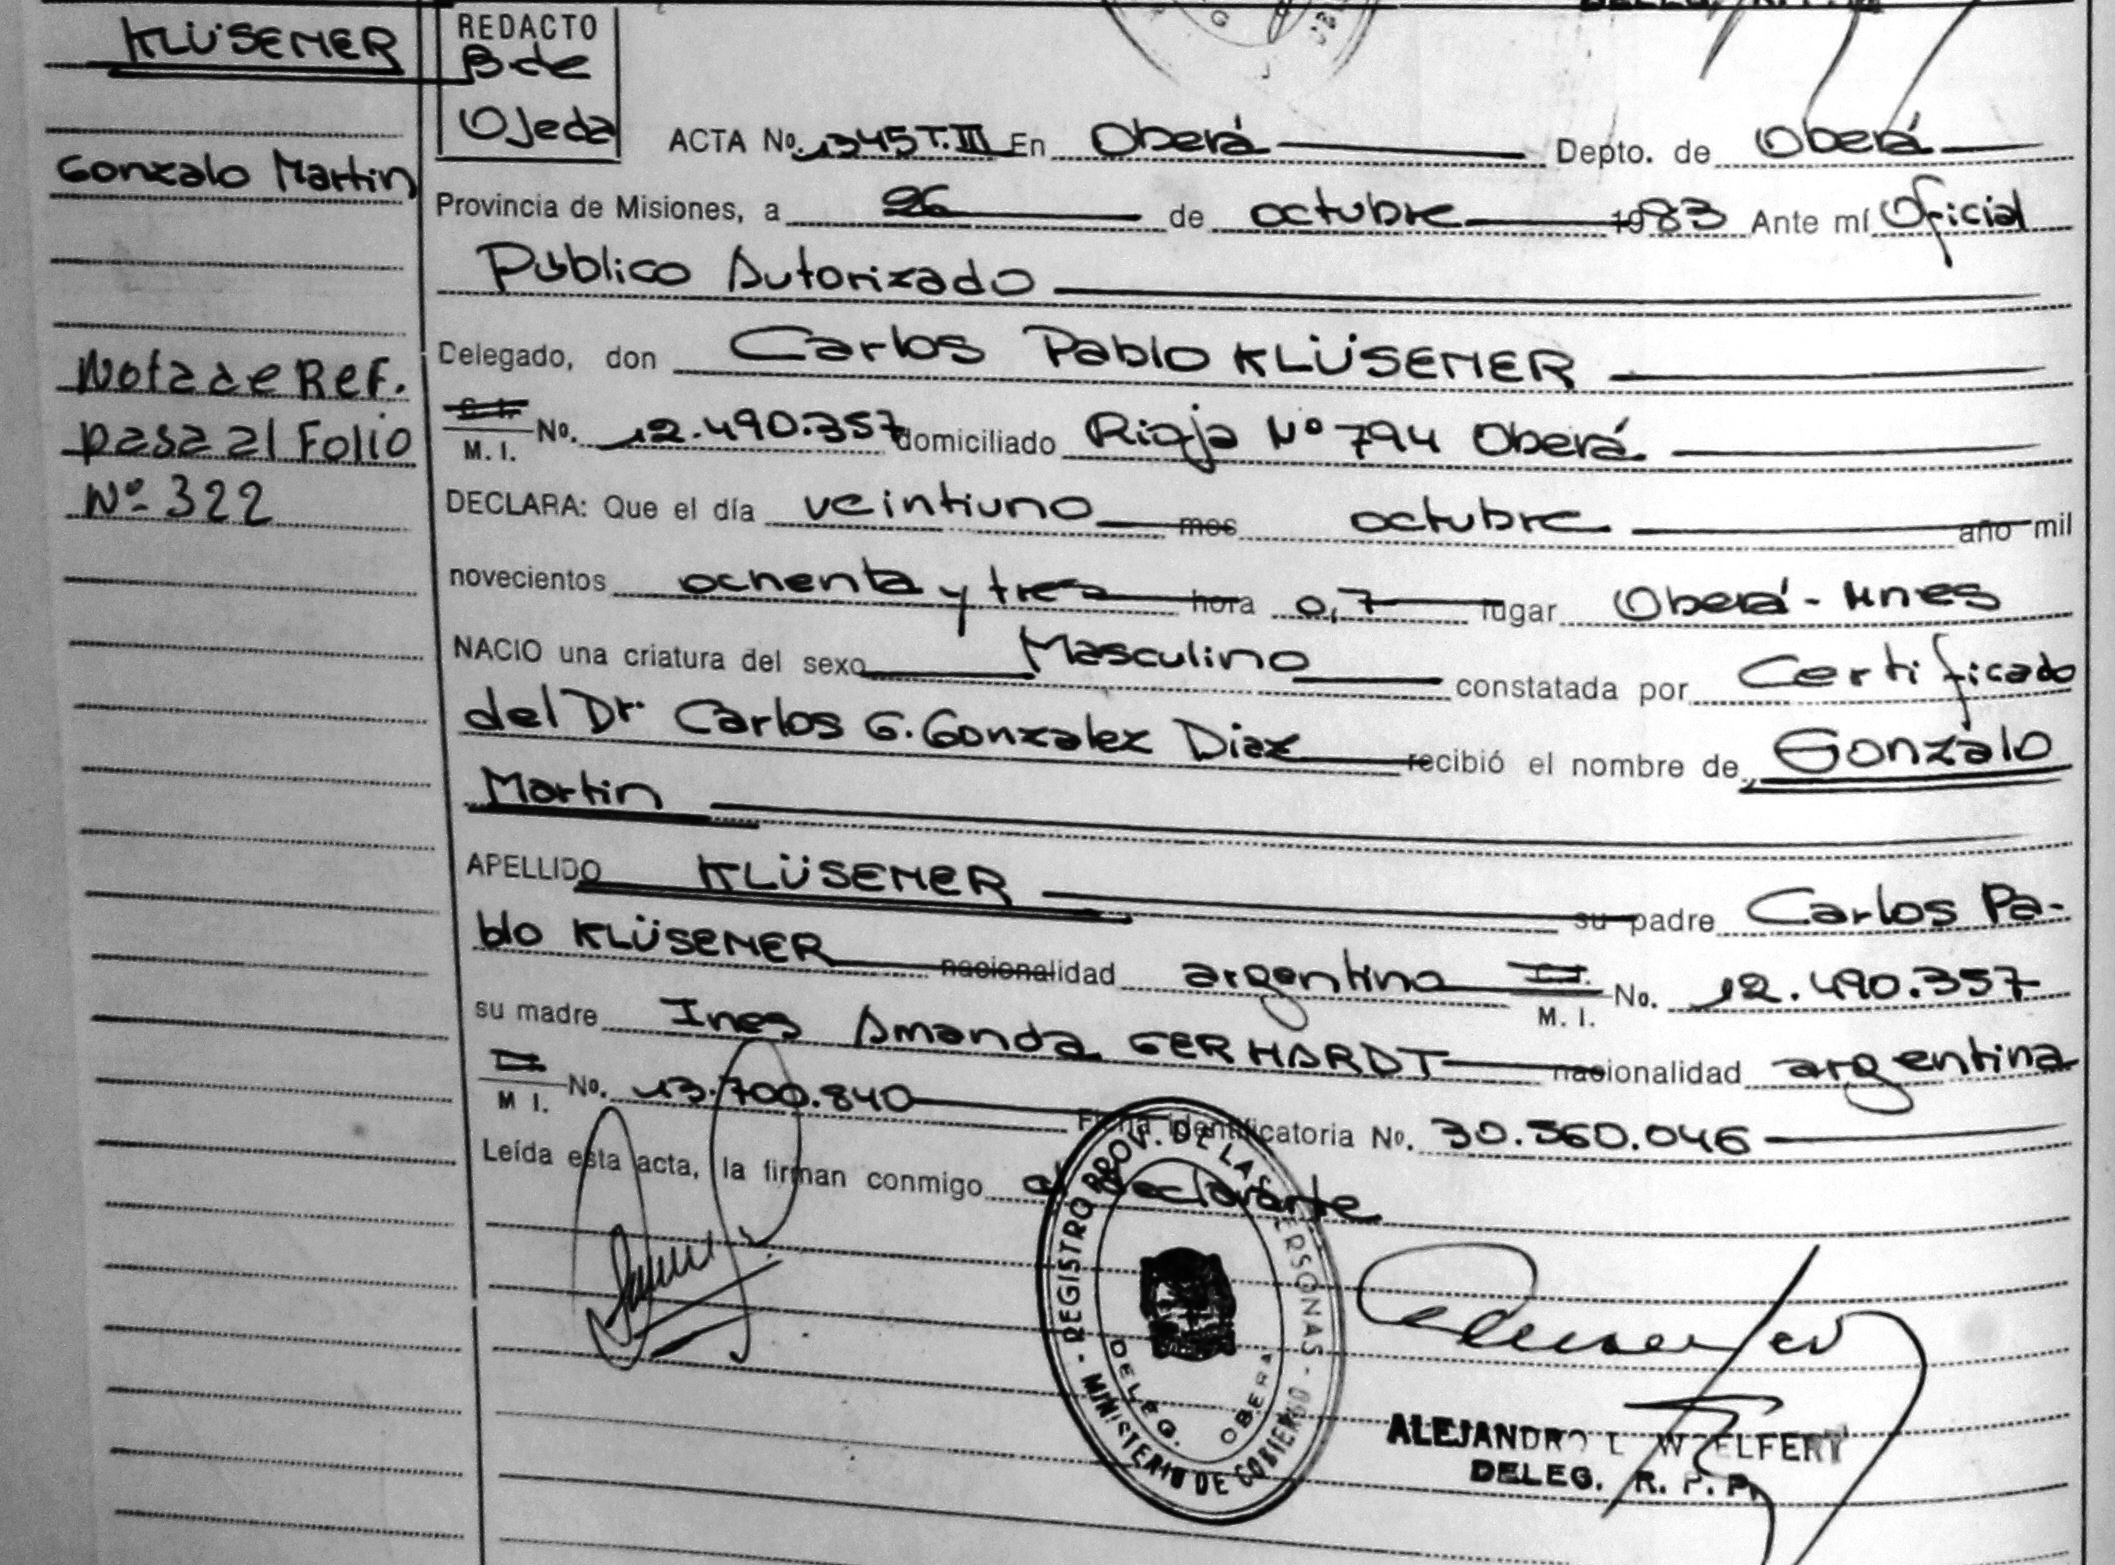 KLÜSENER
REDACTO
B. de
Ojeda
Gonzalo Martin
Nota de Ref.
pasa al Folio
Nº 322
ACTA Nº. 1345 T. III En Oberá Depto. de Oberá
Provincia de Misiones, a 26 de octubre 1983 Ante mí Oficial
Público Autorizado
Delegado, don Carlos Pablo KLÜSENER
M. I. Nº. 12.490.357 domiciliado Rioja Nº 794 Oberá.
DECLARA: Que el día veintiuno mes octubre año mil
novecientos ochenta y tres hora 0,7 lugar Oberá - Mnes
NACIO una criatura del sexo Masculino constatada por Certificado
del Dr. Carlos G. Gonzalez Diaz recibió el nombre de Gonzalo
Martin
APELLIDO KLÜSENER su padre Carlos Pa-
blo KLÜSENER nacionalidad argentina M. I. No. 12.490.357
su madre Ines Amanda GERHARDT nacionalidad argentina
M I. Nº. 13.700.840 Ficha Identificatoria Nº. 30.360.046
Leída esta acta, la firman conmigo el declarante
REGISTRO PROV. DE LAS PERSONAS - MINISTERIO DE GOBIERNO
DELEG. OBERA
ALEJANDRO L WOELFERT
DELEG. R. P. P.